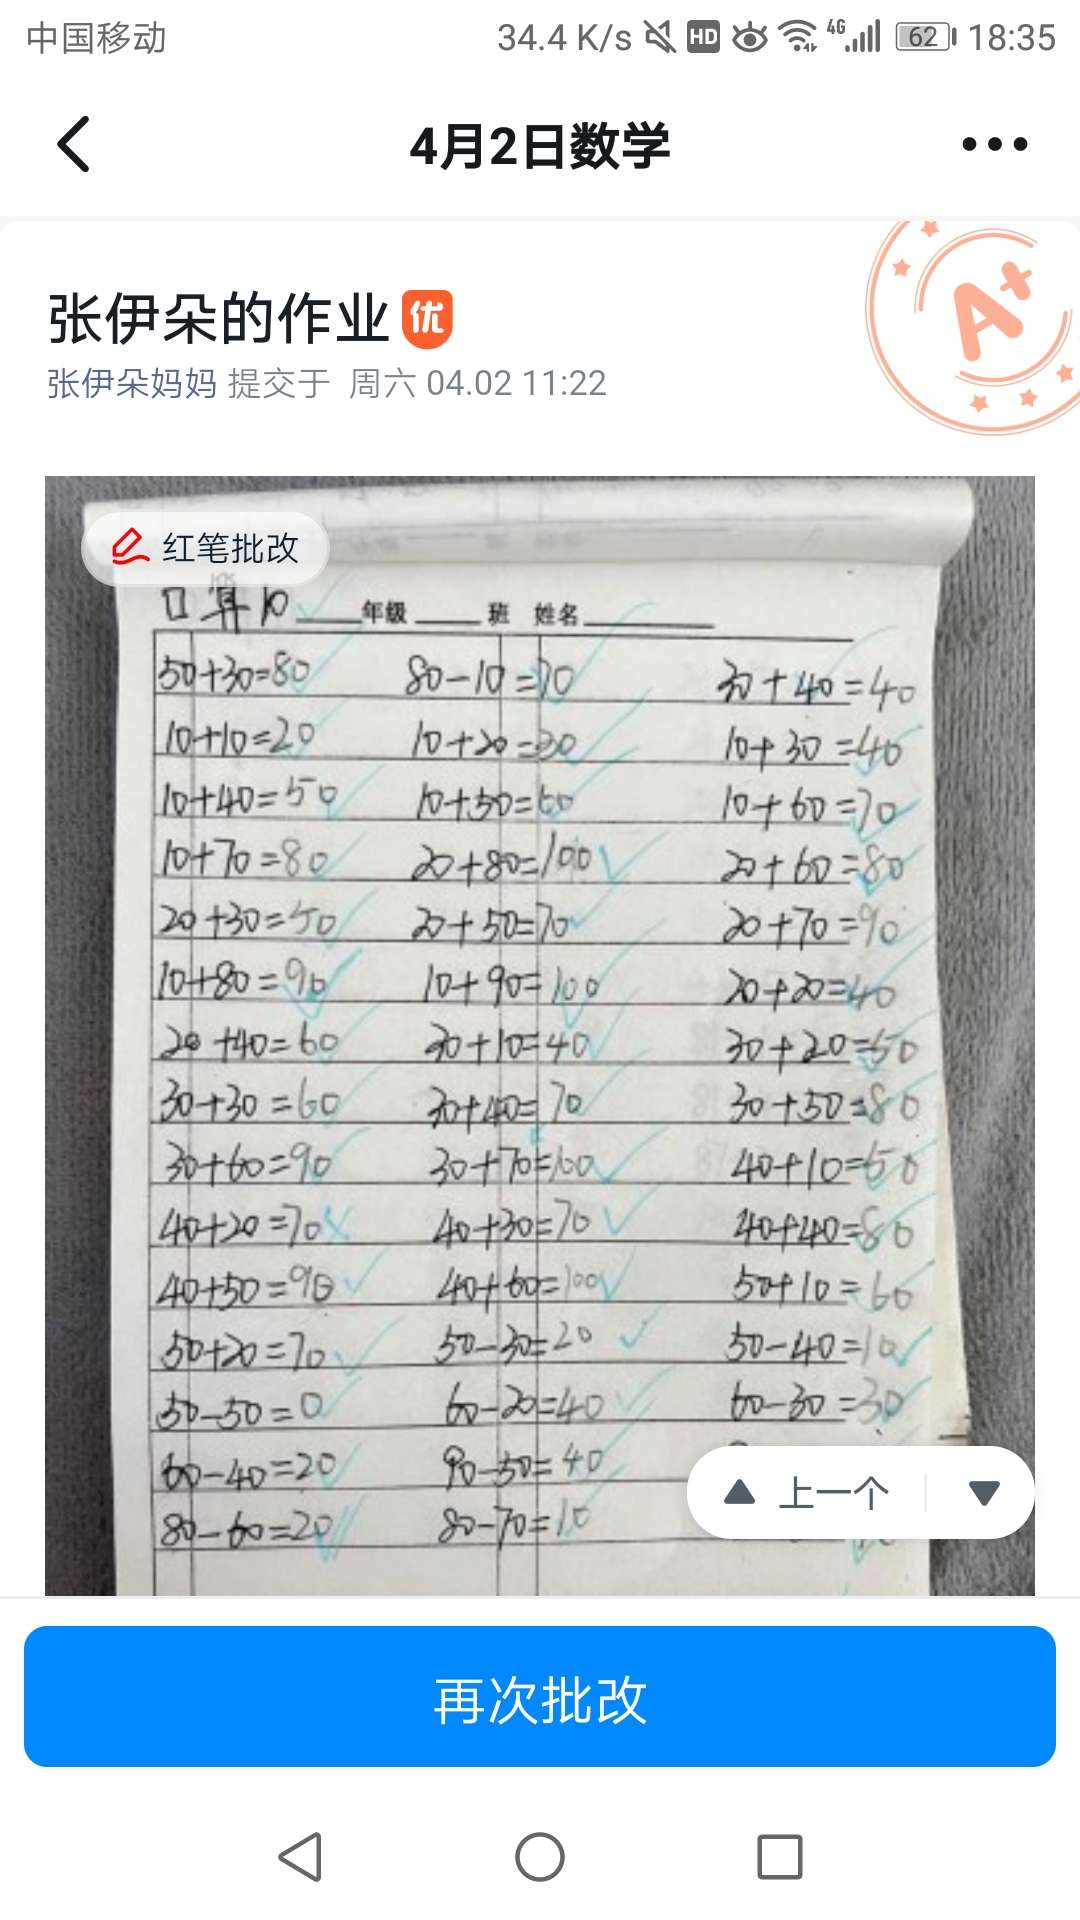 中国移动 34.4 K/s HD 4G 62 18:35
4月2日数学
A+
张伊朵的作业 优
张伊朵妈妈 提交于 周六 04.02 11:22
红笔批改
口算10 ____年级 ____ 班 姓名________
50+30=80 80-10=70 30+40=40
10+10=20 10+20=30 10+30=40
10+40=50 10+50=60 10+60=70
10+70=80 20+80=100 20+60=80
20+30=50 20+50=70 20+70=90
10+80=90 10+90=100 20+20=40
20+40=60 30+10=40 30+20=50
30+30=60 30+40=70 30+50=80
30+60=90 30+70=100 40+10=50
40+20=70 40+30=70 40+40=80
40+50=90 40+60=100 50+10=60
50+20=70 50-30=20 50-40=10
50-50=0 60-20=40 60-30=30
60-40=20 90-50=40
80-60=20 80-70=10
上一个
再次批改